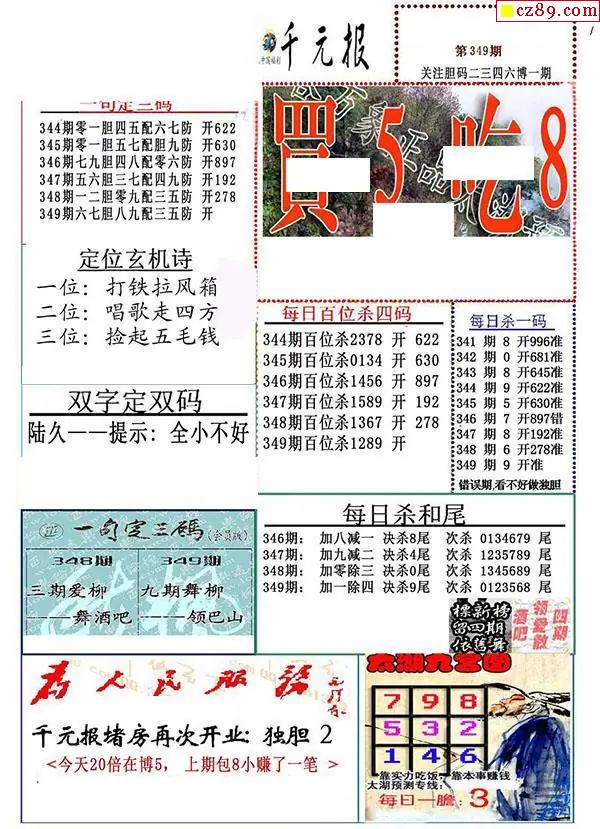 cz89.com
千元报
第349期
关注胆码二三四六博一期
一句定三码
344期零一胆四五配六七防 开622
345期零一五七配胆九防 开630
346期七九胆四八配零六防 开897
347期五六胆三七配四九防 开192
348期一二胆零九配三五防 开278
349期六七胆八九配三五防 开
買5吃8
定位玄机诗
一位：打铁拉风箱
二位：唱歌走四方
三位：捡起五毛钱
每日百位杀四码
344期百位杀2378 开 622
345期百位杀0134 开 630
346期百位杀1456 开 897
347期百位杀1589 开 192
348期百位杀1367 开 278
349期百位杀1289 开
每日杀一码
341 期 8 开996准
342 期 0 开681准
343 期 8 开645准
344 期 9 开622准
345 期 5 开630准
346 期 7 开897错
347 期 8 开192准
348 期 6 开278准
349 期 9 开准
错误期,看不好做独胆
双字定双码
陆久——提示：全小不好
一句定三碼(会员版)
348期 349期
三期爱柳 九期舞柳
——舞酒吧 ——领巴山
每日杀和尾
346期： 加八减一 决杀8尾 次杀 0134679 尾
347期： 加九减二 决杀4尾 次杀 1235789 尾
348期： 加零除三 决杀0尾 次杀 1345689 尾
349期： 加一除四 决杀9尾 次杀 0123568 尾
標新榜
留四期
依舊舞
酒吧
领爱散
四期
为人民服务
千元报堵房再次开业：独胆 2
<今天20倍在博5， 上期包8小赚了一笔 >
太湖九宫图
7 9 8
5 3 2
1 4 6
靠实力吃饭，靠本事赚钱
太湖预测专线：
每日一胆：3